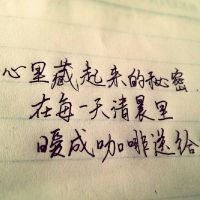 心里藏起来的秘密
在每一天清晨里
暖成咖啡送给